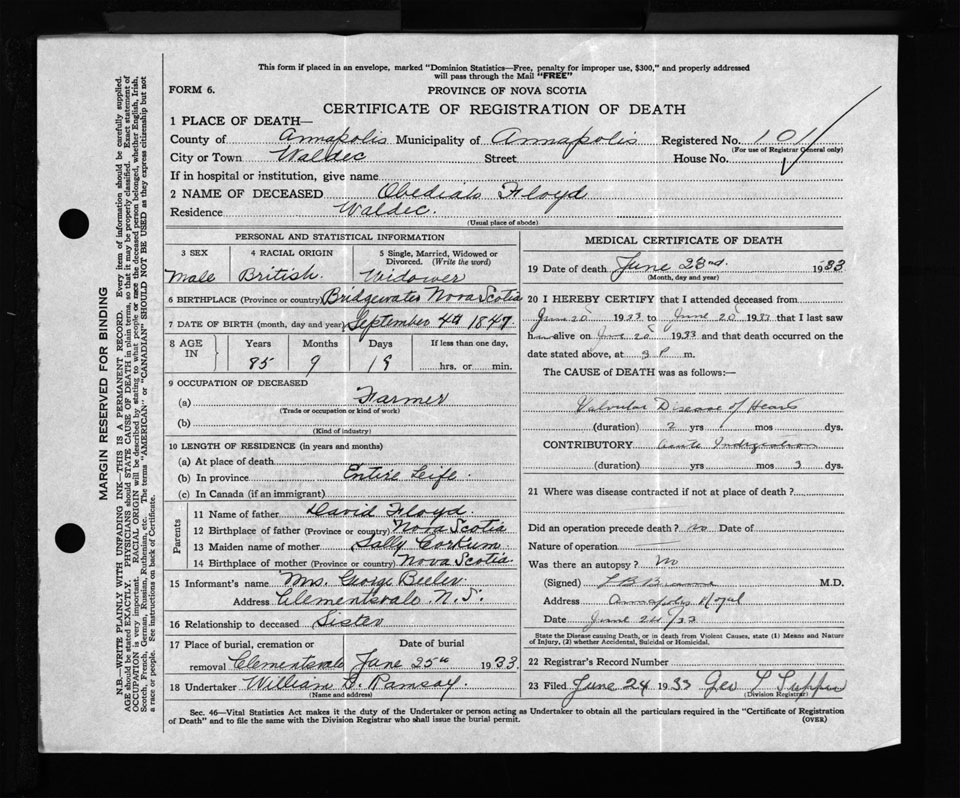 This form if placed in an envelope, marked "Dominion Statistics—Free, penalty for improper use, $300," and properly addressed
will pass through the Mail "FREE"
FORM 6.
PROVINCE OF NOVA SCOTIA
CERTIFICATE OF REGISTRATION OF DEATH
1 PLACE OF DEATH—
County of Annapolis Municipality of Annapolis Registered No. 101
(For use of Registrar General only)
City or Town Waldec Street House No.
If in hospital or institution, give name
2 NAME OF DECEASED Obediah Floyd
Residence Waldec.
(Usual place of abode)
PERSONAL AND STATISTICAL INFORMATION
3 SEX 4 RACIAL ORIGIN 5 Single, Married, Widowed or
Divorced. (Write the word)
Male British. Widower
6 BIRTHPLACE (Province or country) Bridgewater Nova Scotia
7 DATE OF BIRTH (month, day and year) September 4th 1847
8 AGE IN Years Months Days If less than one day,
85 9 19 hrs. or min.
9 OCCUPATION OF DECEASED
(a) Farmer
(Trade or occupation or kind of work)
(b)
(Kind of industry)
10 LENGTH OF RESIDENCE (in years and months)
(a) At place of death
(b) In province Entire Life
(c) In Canada (if an immigrant)
Parents
11 Name of father David Floyd
12 Birthplace of father (Province or country) Nova Scotia
13 Maiden name of mother Sally Corkum
14 Birthplace of mother (Province or country) Nova Scotia
15 Informant's name Mrs. George Beeler
Address Clementsvale N.S.
16 Relationship to deceased Sister
17 Place of burial, cremation or Date of burial
removal Clementsvale June 25th 1933
18 Undertaker William D. Ramsay.
(Name and address)
MEDICAL CERTIFICATE OF DEATH
19 Date of death June 23nd. 1933
(Month, day and year)
20 I HEREBY CERTIFY that I attended deceased from
June 20 1933 to June 20 1933 that I last saw
him alive on June 20 1933 and that death occurred on the
date stated above, at 3 P m.
The CAUSE of DEATH was as follows:—
Valvular Disease of Heart
(duration) 2 yrs mos dys.
CONTRIBUTORY Acute Indigestion
(duration) yrs mos 3 dys.
21 Where was disease contracted if not at place of death?
Did an operation precede death? no Date of
Nature of operation
Was there an autopsy? No
(Signed) M.D.
Address Annapolis Royal
Date June 24/33
State the Disease causing Death, or in death from Violent Causes, state (1) Means and Nature
of Injury, (2) whether Accidental, Suicidal or Homicidal.
22 Registrar's Record Number
23 Filed June 24 1933 Geo L
(Division Registrar)
Sec. 46—Vital Statistics Act makes it the duty of the Undertaker or person acting as Undertaker to obtain all the particulars required in the "Certificate of Registration
of Death" and to file the same with the Division Registrar who shall issue the burial permit.
(OVER)
MARGIN RESERVED FOR BINDING
N.B.—WRITE PLAINLY WITH UNFADING INK—THIS IS A PERMANENT RECORD. Every item of information should be carefully supplied.
AGE should be stated EXACTLY. PHYSICIANS should STATE CAUSE OF DEATH in plain terms, so that it may be properly classified. Exact statement of
OCCUPATION is very important. RACIAL ORIGIN will be described by stating to what people or race the deceased person belonged, whether English, Irish,
Scotch, French, German, Russian, Ruthenian, etc. The terms "AMERICAN" or "CANADIAN" SHOULD NOT BE USED as they express citizenship but not
a race or people. See instructions on back of Certificate.